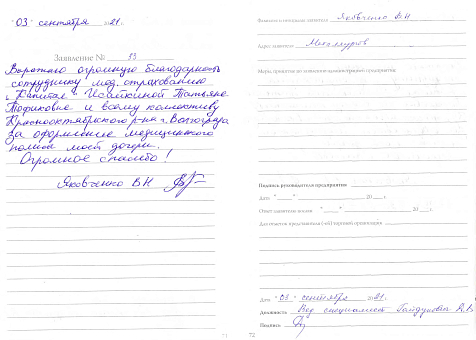 "03" сентября 2021.
Заявление № 53
Выражаю огромную благодарность
сотруднику мед. страхованию
Капитал Исайкиной Татьяне
и всему коллективу
Краснооктябрьского р-на г. Волгограда
за оформление медицинского
полиса моей дочери.
Огромное спасибо!
Яковченко В Н
71
Фамилия и инициалы заявителя Яковченко В.Н
Адрес заявителя Металлургов
Меры, принятые по заявлению администрацией предприятия
Подпись руководителя предприятия
Дата " " 20 г.
Ответ заявителю послан " " 20 г.
Для отметок представителя (ей) торговой организации
Дата "03" сентября 2021.
Должность Вед специалист
Подпись
72